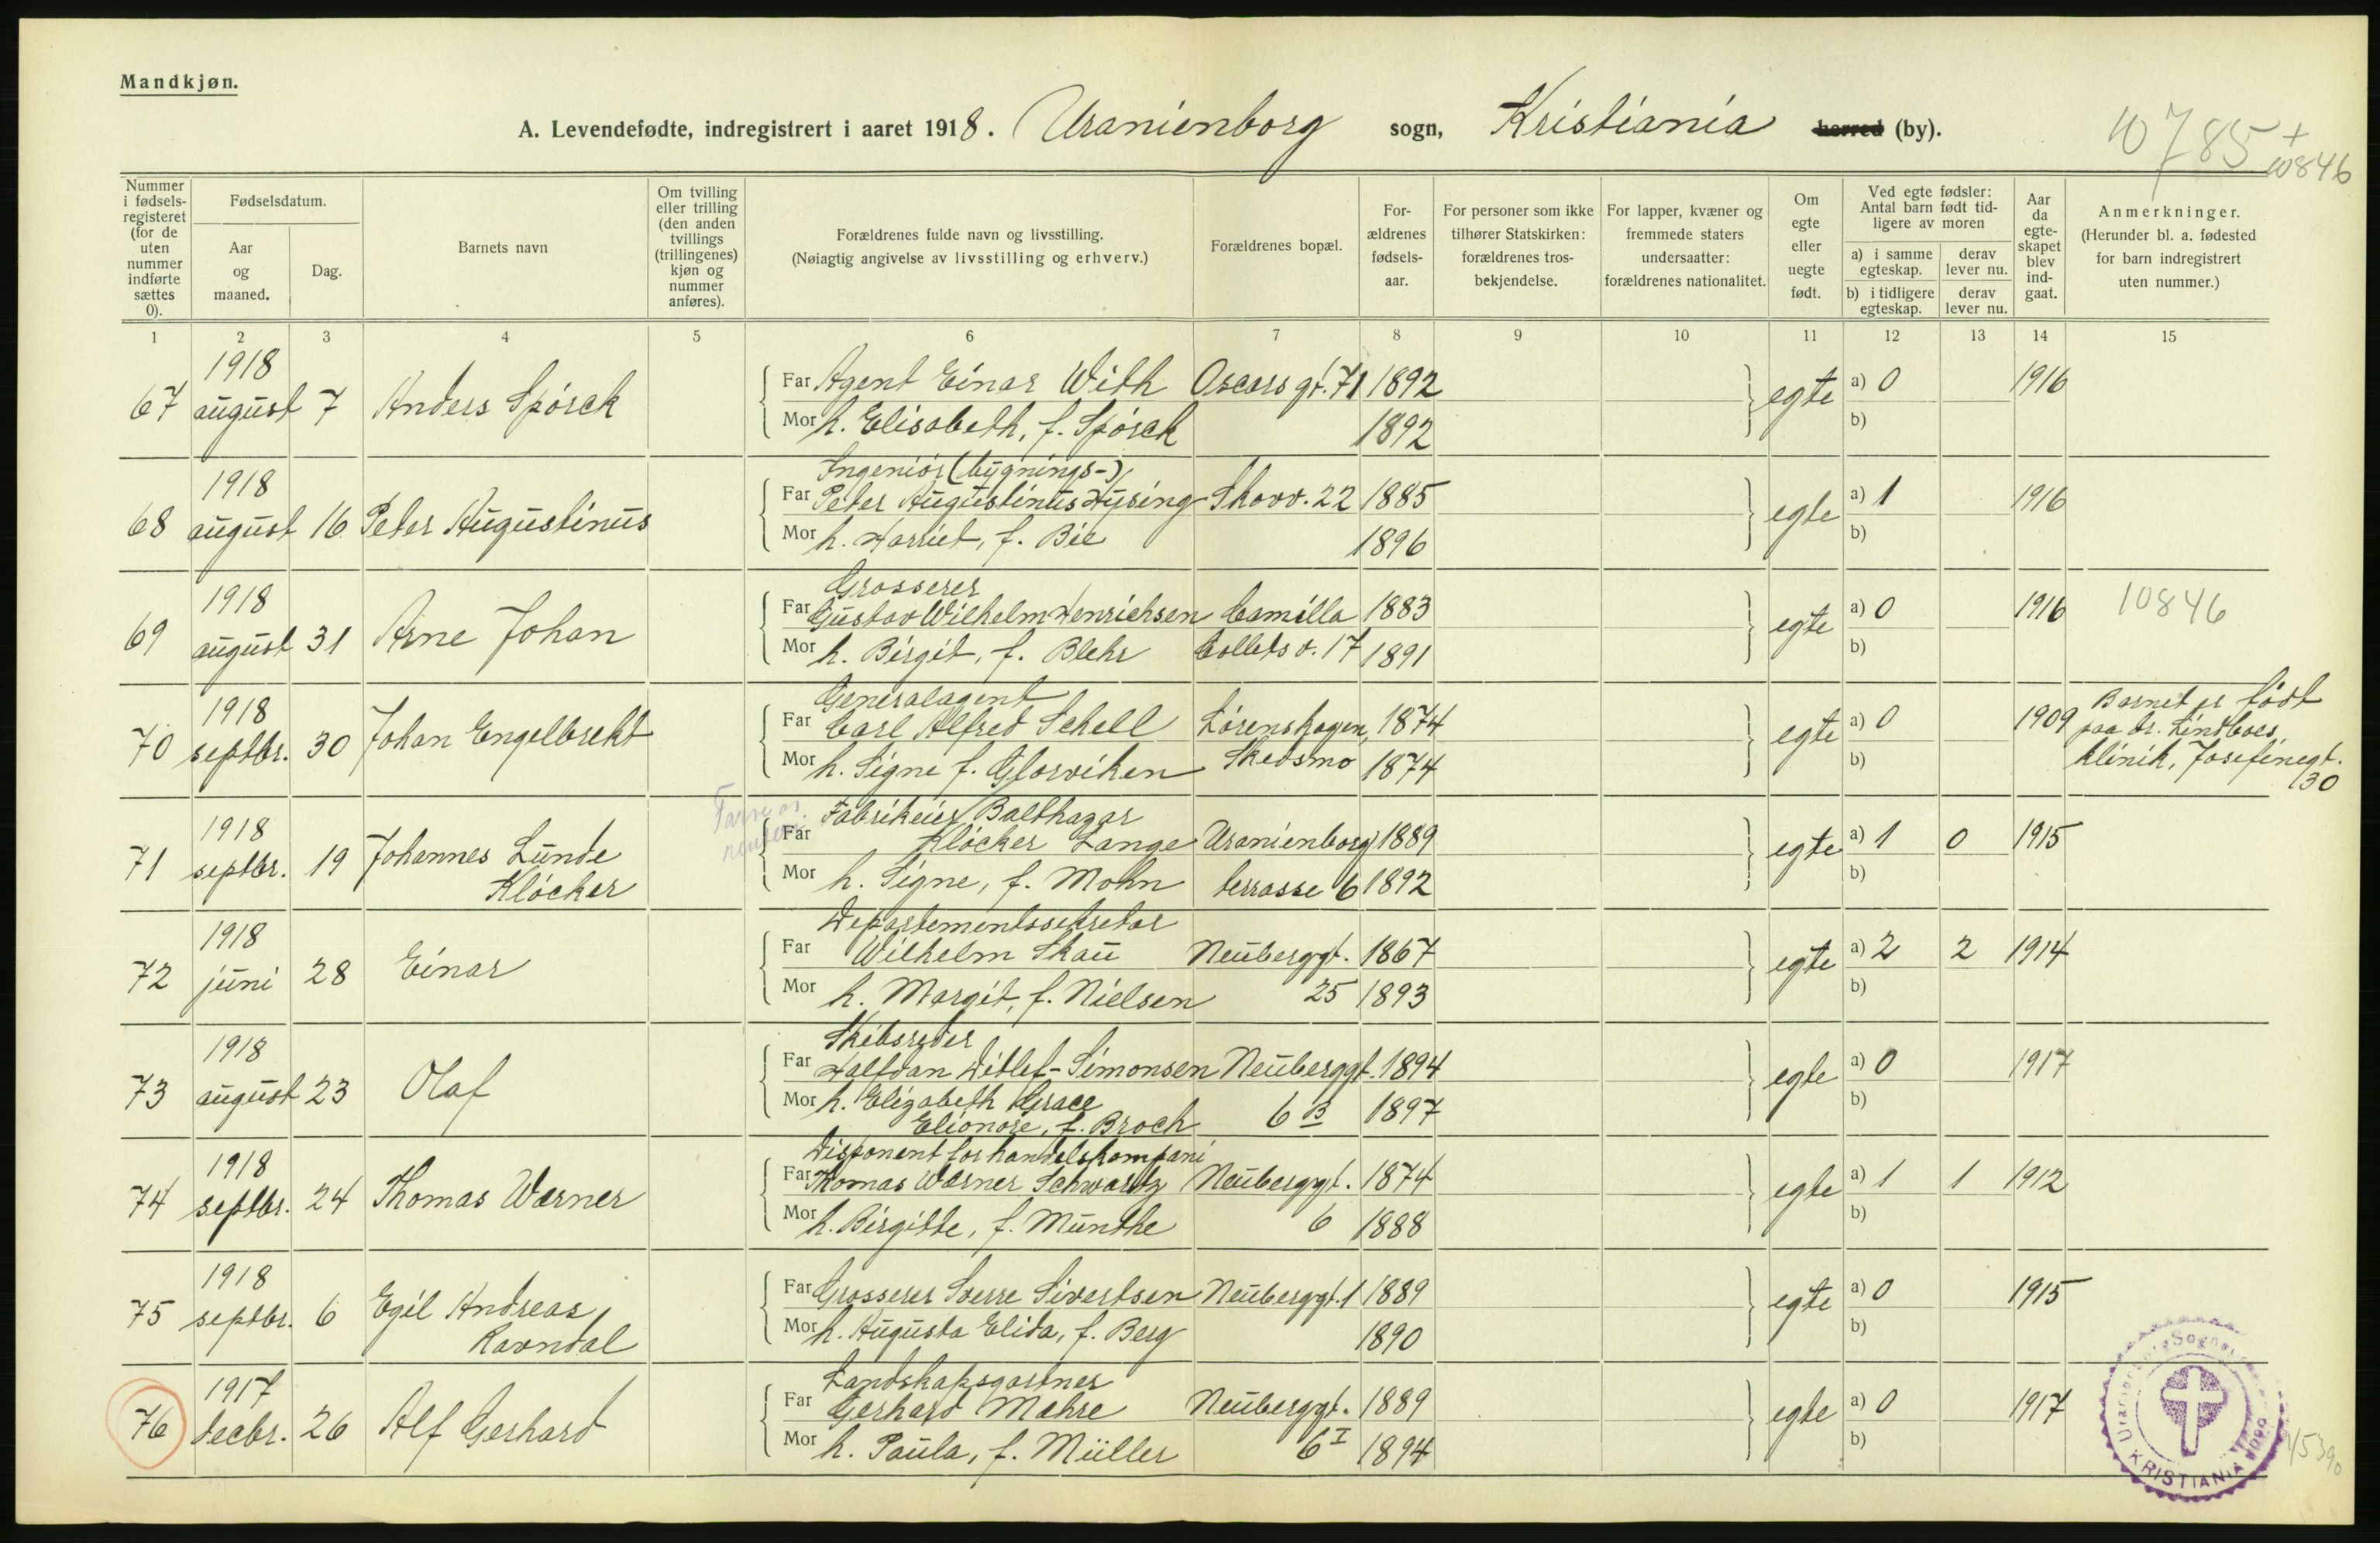 Mandkjøn.
A. Levendefødte, indregistrert i aaret 1918. Uranienborg sogn, Kristiania herred (by).
10785 +
10846
Nummer i fødsels-registeret (for de uten nummer indførte sættes 0).
Fødselsdatum.
Aar og maaned.
Dag.
Barnets navn
Om tvilling eller trilling (den anden tvillings (trillingenes) kjøn og nummer anføres).
Forældrenes fulde navn og livsstilling.
(Nøiagtig angivelse av livsstilling og erhverv.)
Forældrenes bopæl.
For-ældrenes fødsels-aar.
For personer som ikke tilhører Statskirken: forældrenes tros-bekjendelse.
For lapper, kvæner og fremmede staters undersaatter: forældrenes nationalitet.
Om egte eller uegte født.
Ved egte fødsler: Antal barn født tid-ligere av moren
a) i samme egteskap.
derav lever nu.
b) i tidligere egteskap.
derav lever nu.
Aar da egte-skapet blev ind-gaat.
Anmerkninger.
(Herunder bl. a. fødested for barn indregistrert uten nummer.)
1 2 3 4 5 6 7 8 9 10 11 12 13 14 15
1918
67 august 7 Anders Spörck
Far Agent Einar With Oscarsgt. 71 1892 egte a) 0 1916
Mor h. Elisabeth, f. Spörck 1892 b)
1918 Ingeniör (bygnings-)
68 august 16 Peter Augustinus
Far Peter Augustinus Hysing Skovv. 22 1885 egte a) 1 1916
Mor h. Harriet, f. Bie 1896 b)
1918 Grosserer
69 august 31 Arne Johan
Far Gustav Wilhelm Henrichsen Camilla 1883 egte a) 0 1916 10846
Mor h. Birgit, f. Blehr Collets v. 17 1891 b)
1918 Generalagent
70 septbr. 30 Johan Engelbrekt
Far Carl Alfred Schell Lørenskogen, 1874 egte a) 0 1909
Mor h. Signe f. Glorviken Skedsmo 1874 b)
Barnet er født
paa dr. Lindboes
klinik, Josefinegt.
30
1918 Fabrikeier Balthazar
71 septbr. 19 Johannes Lunde
Klöcker
Far Klöcker Lange Uranienborg 1889 egte a) 1 0 1915
Mor h. Signe, f. Mohn terrasse 6 1892 b)
1918 Departementssekretær
72 juni 28 Einar
Far Wilhelm Skau Neuberggt. 1867 egte a) 2 2 1914
Mor h. Margit, f. Nielsen 25 1893 b)
1918 Skibsreder
73 august 23 Olaf
Far Halfdan Ditlef-Simonsen Neuberggt. 1894 egte a) 0 1917
Mor h. Elizabeth Grace
Elionore, f. Broch 6 B 1897 b)
1918 Disponent for handelskompani
74 septbr. 24 Thomas Wærner
Far Thomas Wærner Schwartz Neuberggt. 1874 egte a) 1 1 1912
Mor h. Birgitte, f. Munthe 6 1888 b)
1918
75 septbr. 6 Egil Andreas
Ravndal
Far Grosserer Sverre Sivertsen Neuberggt. 1 1889 egte a) 0 1915
Mor h. Augusta Elida, f. Berg 1890 b)
1917 Landskapsgartner
76 decbr. 26 Alf Gerhard
Far Gerhard Mæhre Neuberggt. 1889 egte a) 0 1917
Mor h. Paula, f. Müller 6 I 1894 b)
KRISTIANIA